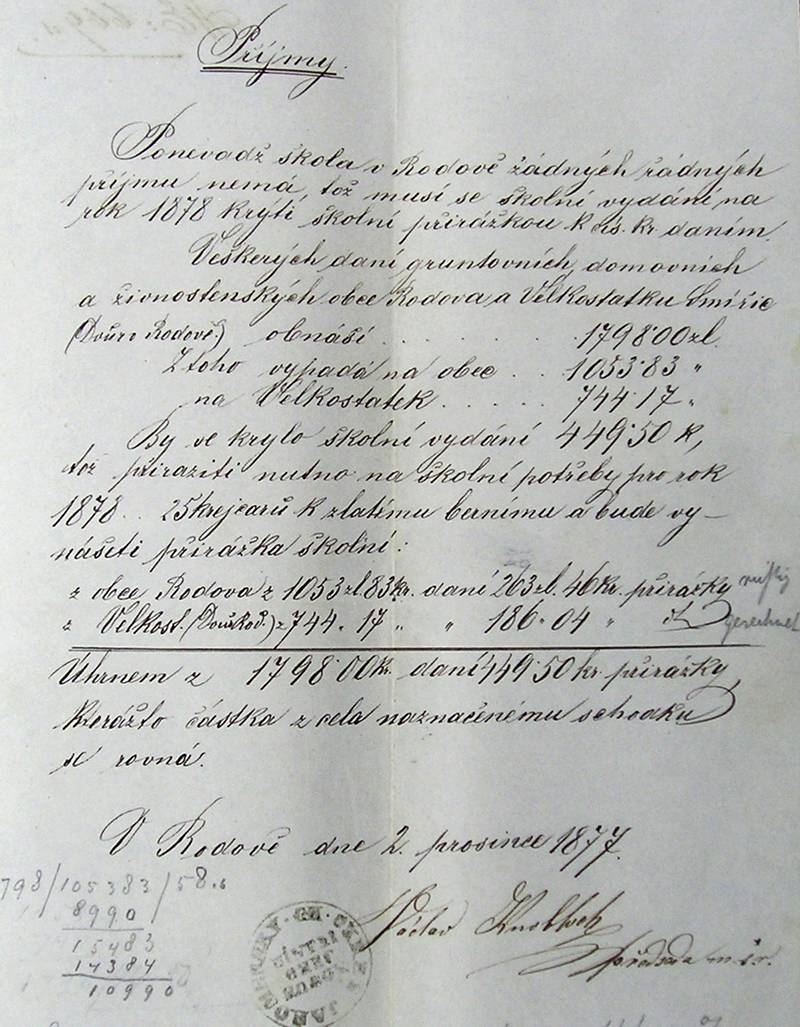 Příjmy.
Ponevadž škola v Rodově žádných řádných
příjmu nemá, tož musí se školní vydání na
rok 1878 krýti školní přirážkou k cís. kr. daním.
Veškerých daní gruntovních, domovních
a živnostenských obce Rodova a Velkostatku Smiřic
(Dvůr v Rodově) obnáší . . . . . . . 1798·00 zl.
Z toho vypadá na obec . . 1053·83 "
na Velkostatek . . . . . 744·17 "
By se krylo školní vydání 449·50 k,
tož přiraziti nutno na školní potřeby pro rok
1878 . . 25 krejcarů k zlatému bernímu a bude vy-
nášeti přirážka školní:
z obce Rodova z 1053 zl. 83 kr. daní 263 zl. 46 kr. přirážky
z Velkost. (Dvůr Rod.) z 744 " 17 " " 186 " 04 " dt
gerechnet
Úhrnem z 1798·00 kr. daní 449·50 kr. přirážky,
kterážto částka z cela naznačenému schodku
se rovná.
V Rodově dne 2. prosince 1877.
798/105383/58.6
8990
15483
14384
10990
Václav
předseda m. š. r.